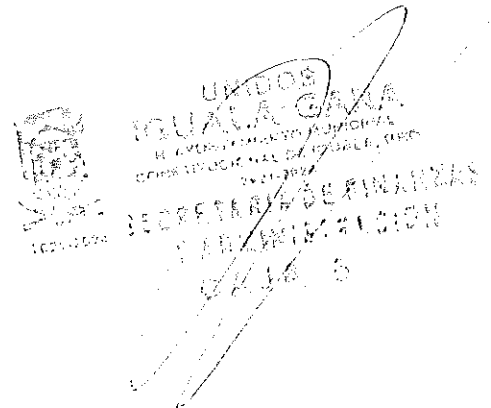 UNIDOS
IGUALA GANA
H. AYUNTAMIENTO MUNICIPAL
CONSTITUCIONAL DE IGUALA, GRO.
2021-2024
SECRETARIA DE FINANZAS
Y ADMINISTRACION
CAJA 6
2021-2024